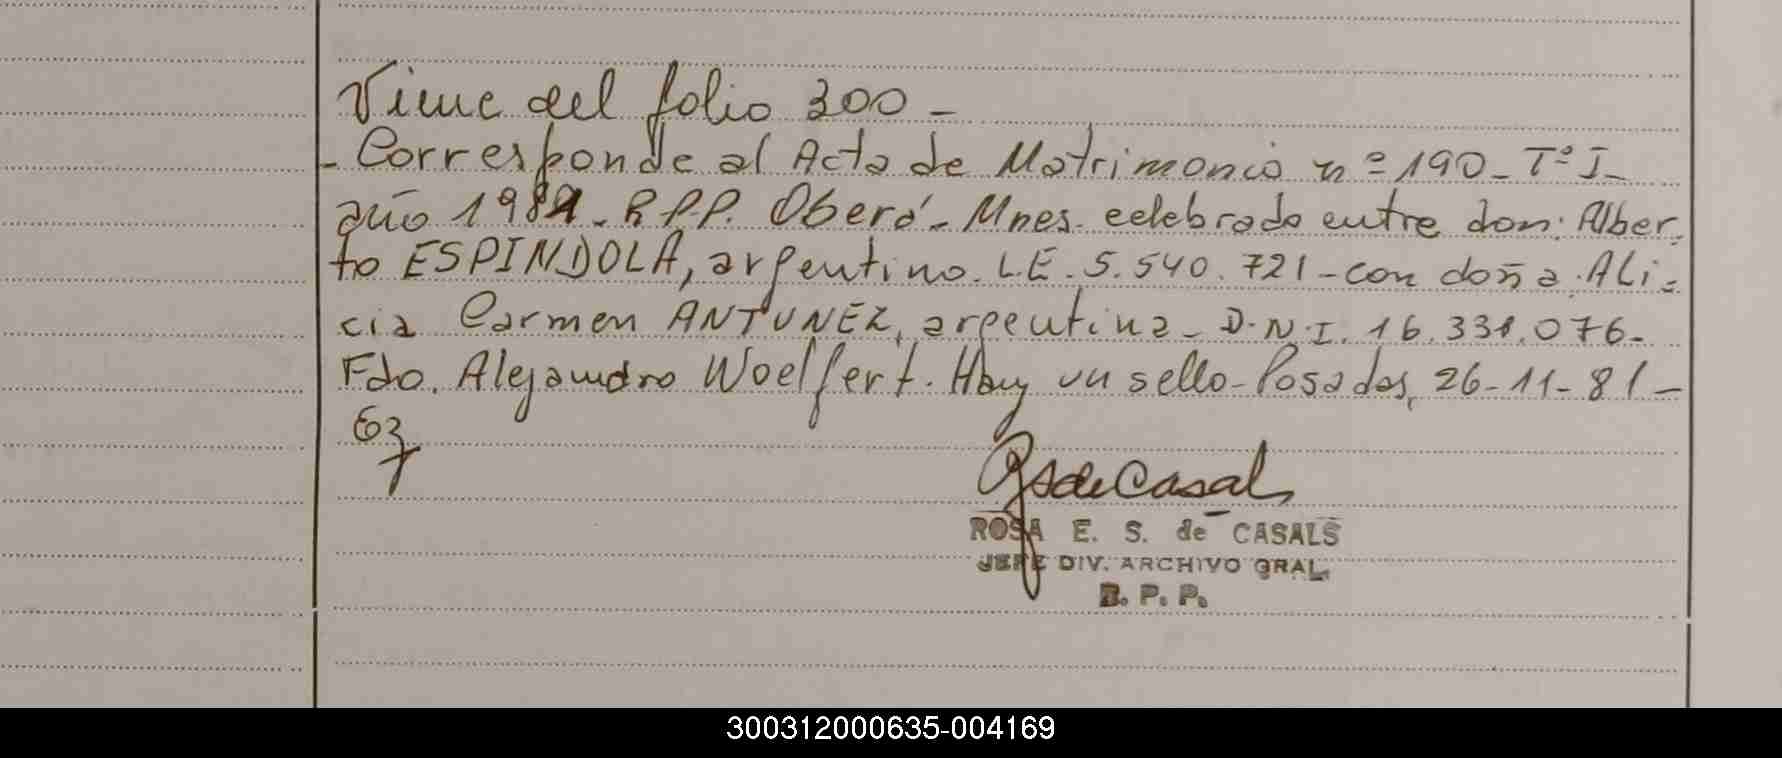 Viene del folio 300 -
- Corresponde al Acta de Matrimonio nº 190 - Tº I -
año 1981 - R.P.P. Oberá - Mnes. celebrado entre don: Alber-
to ESPINDOLA, argentino. L.E. 5.540.721 - con doña. Ali-
cia Carmen ANTUNEZ, argentina - D.N.I. 16.331.076 -
Fdo. Alejandro Woelfert. Hay un sello - Posadas, 26-11-81 -
63
ROSA E. S. de CASALS
JEFE DIV. ARCHIVO GRAL.
R. P. P.
300312000635-004169